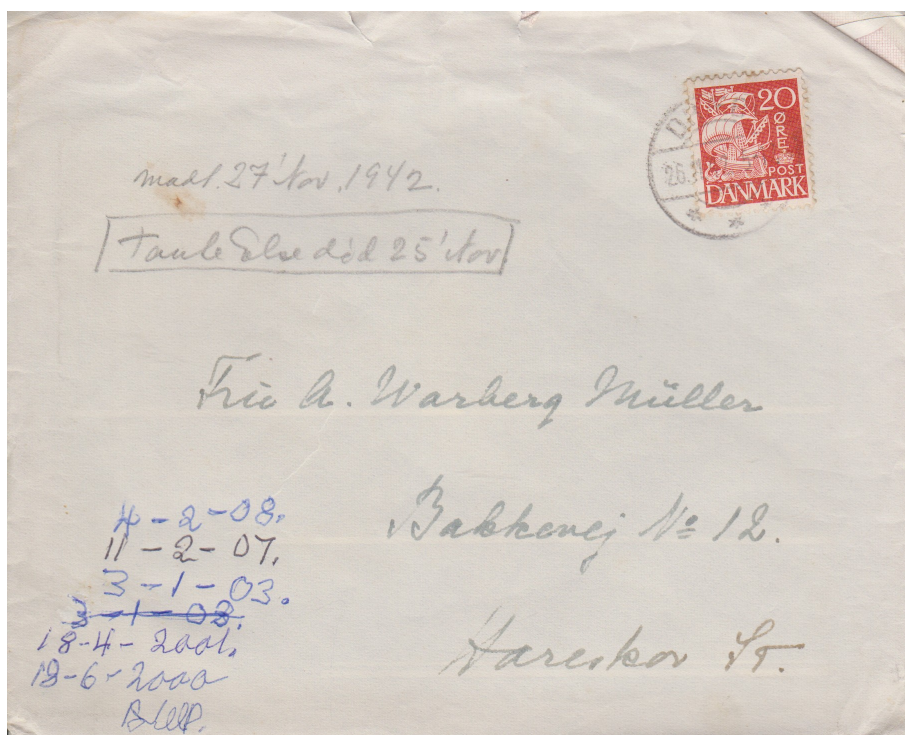 20
ØRE
POST
DANMARK
26.
27' Nov. 1942.
Tante Else død 25' Nov
Fru A. Warberg Müller
Bakkevej No 12.
Hareskov St.
4-2-08.
11-2-07.
3-1-03.
3-1-03.
18-4-2001.
18-6-2000